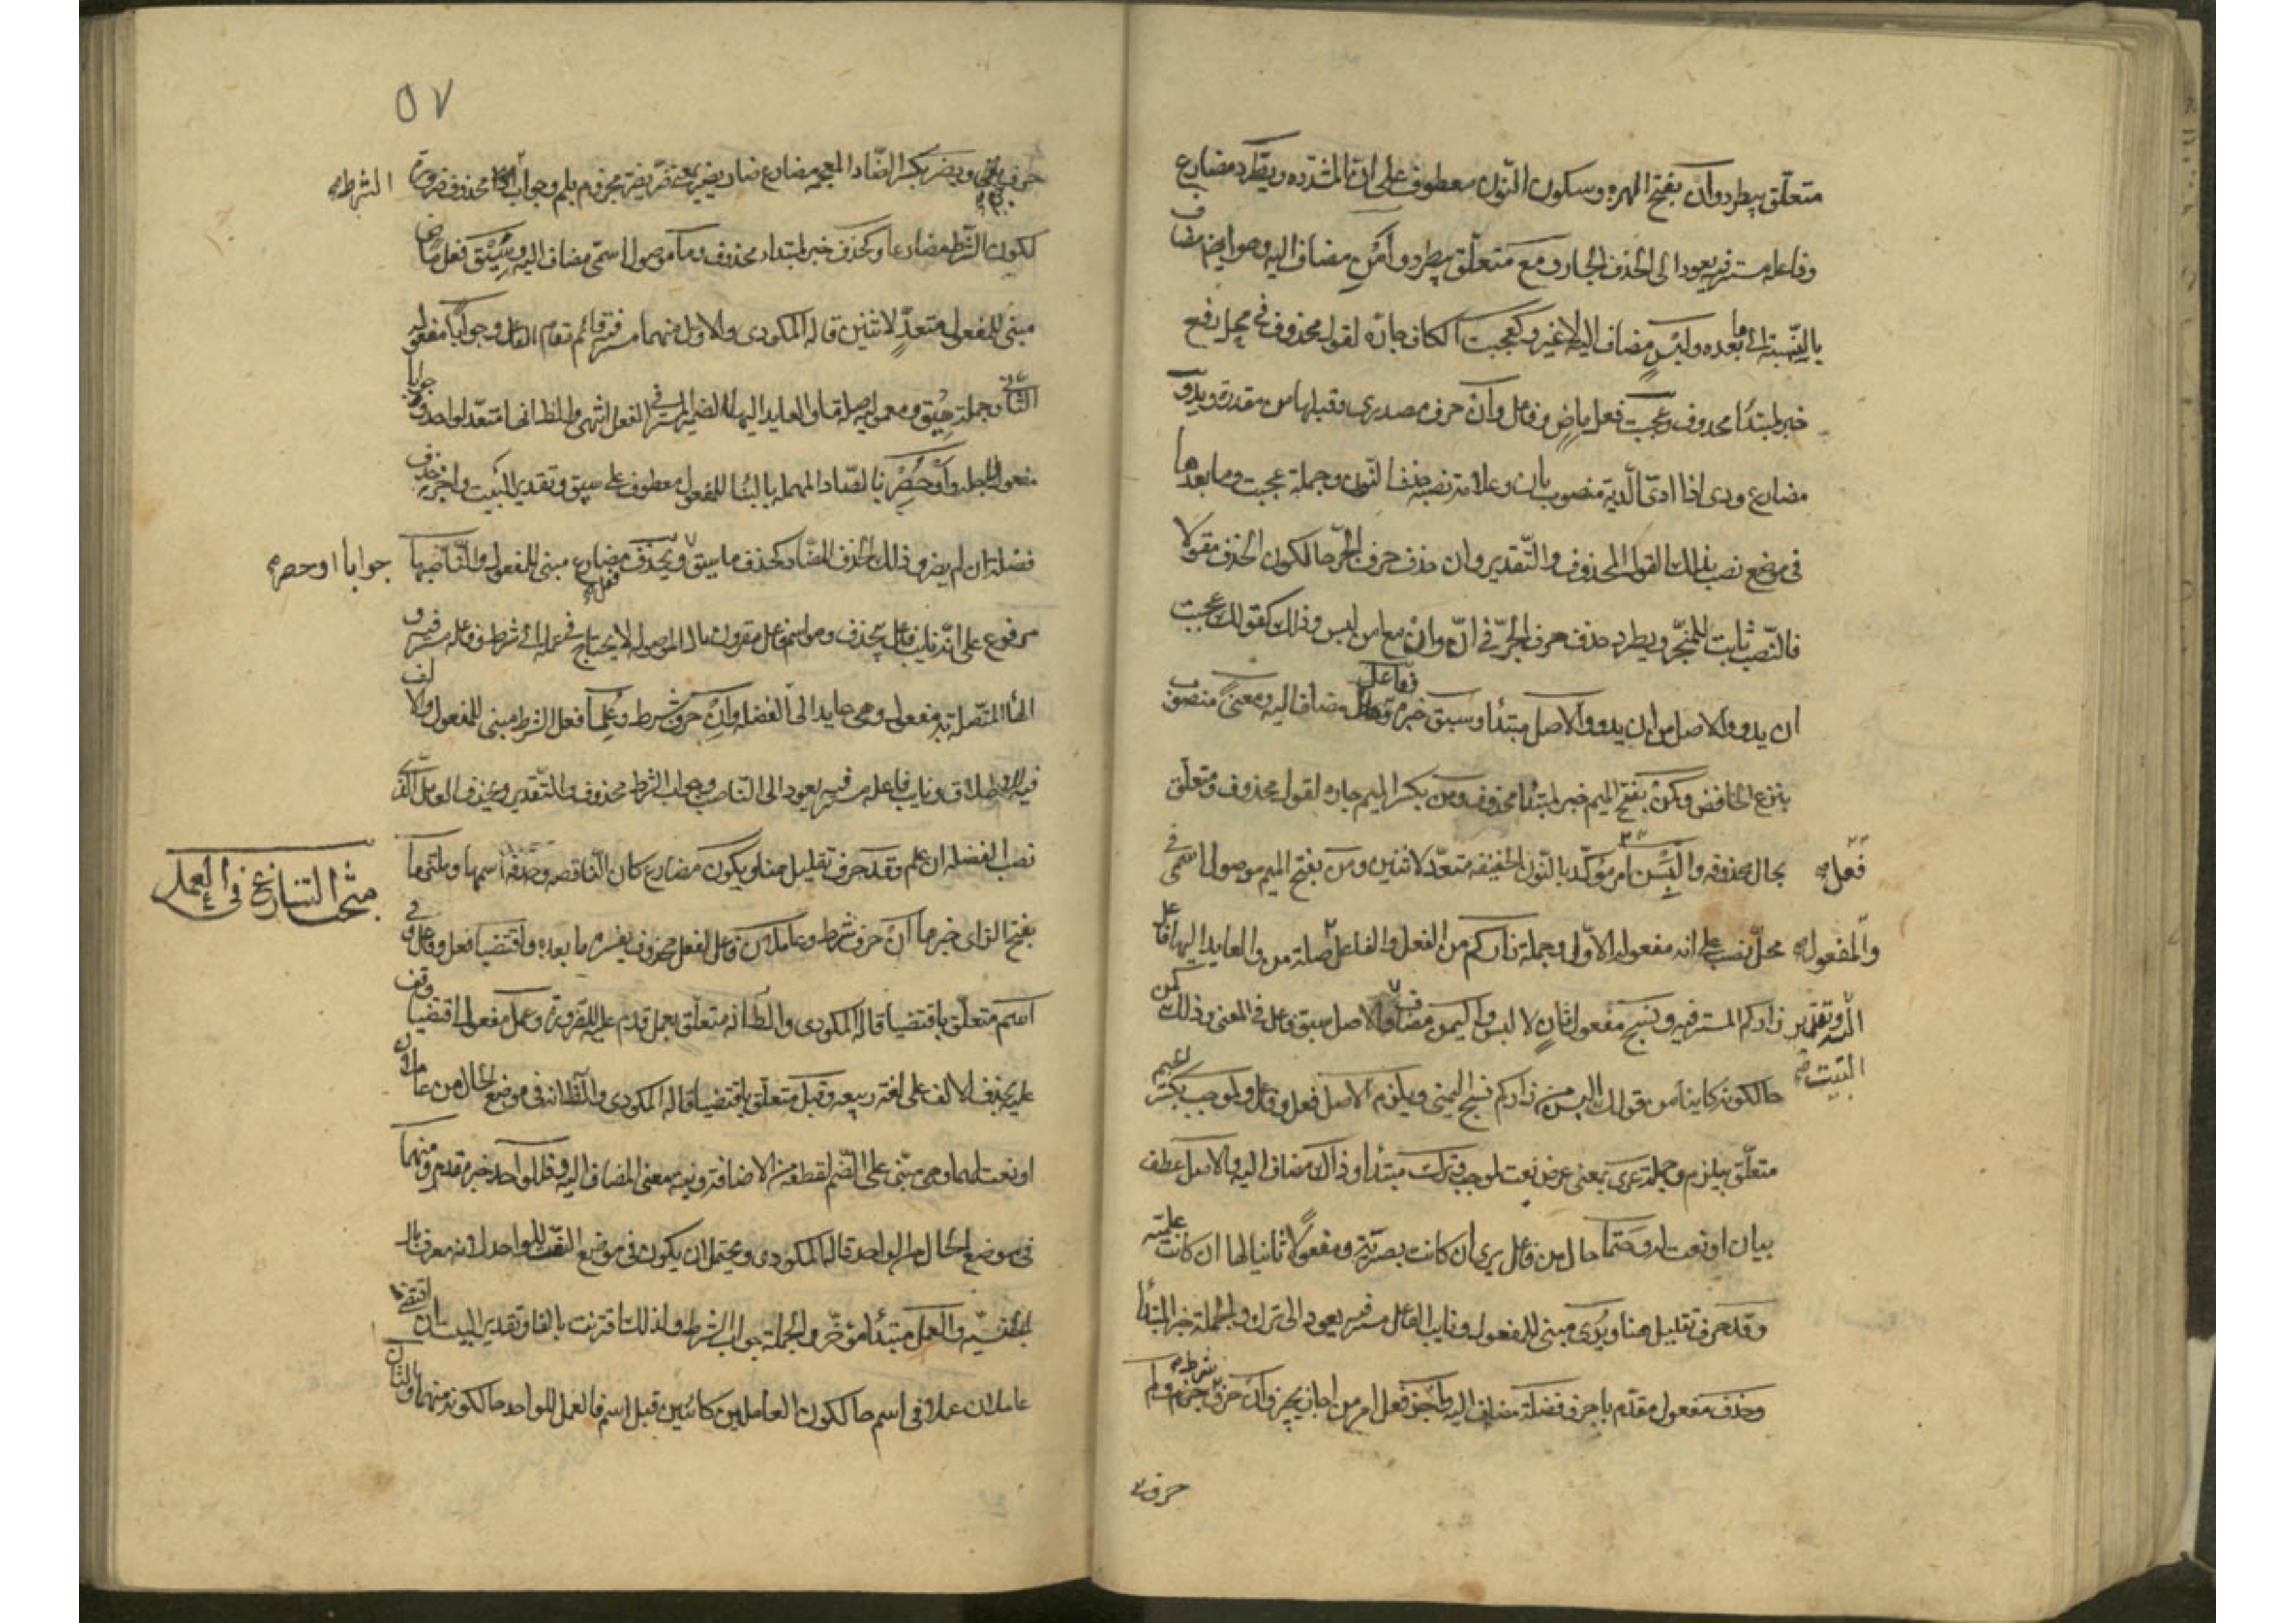 متعلّق بيطرد وأن بفتح الهمزه وسكون النّون معطوف على انّ المشدده ويطّرد مضارع
وفاعله مستتر فيه يعود الى الحذف الجار ومع متعلّق بيطرد وأمن مضاف اليه وهو ايضا مضاف
بالنّسبة الى ما بعده ولبس مضاف اليه لا غير وكعجبت الكاف جارّه لقول محذوف في محل رفع
خبر لمبتدأ محذوف وعجبت فعل ماض وفاعل وأن حرف مصدرى وقبلها من مقدرة ويدو
مضارع ودى اذا ادّى الّدية منصوب بان وعلامة نصبه حذف النّون وجملة عجبت وما بعدها
في موضع نصب بذلك القول المحذوف والتّقدير وان حذف حرف الجرّ حال كون الحذف مقولا
فالنّصب ثابت للمنجرّ ويطرد حذف حرف الجرّ في انّ وأن مع امن لبس وذلك كقولك عجبت
ان يدو والاصل من ان يدو والاصل مبتدأ وسبق خبره وفاعل مضاف اليه ومعنى منصوب
بنزع الخافض وكمن بفتح الميم خبر لمبتدأ محذوف ومن بكسر الميم جاره لقول محذوف ومتعلّق
بحال محذوفه وألبسن فعل امر مؤكّد بالنّون الخفيفه متعدّ لاثنين ومن بفتح الميم موصول اسمى في
محلّ نصب على انه مفعوله الاوّل وجملة زاركم من الفعل والفاعل والمفعول صلة من والعايد اليها فاعل
زاركم المستتر فيه ونسج مفعول ثان لالبس واليمن مضاف اليه وتقدير البيت والاصل سبق فاعل في المعنى وذلك كمن
حالكونه كاينا من قولك البسن من زاركم نسج اليمنى ويلزم الاصل فعل وفاعل ولموجب بكسر الجيم
متعلّق بيلزم وجملة عرى بمعنى عرض نعت لموجب وترك مبتدأ وذاك مضاف اليه والاصل عطف
بيان او نعت له وحتما حال من فاعل يرى ان كانت بصريّة ومفعولا ثانيا لها ان كانت علميّة
وقد حرف تقليل هنا ويرى مبنى للمفعول ونايب الفاعل مستتر فيه يعود الى ترك والجملة خبر المبتدأ
وحذف مفعول مقدّم باجز وفضلة مضاف اليه واجز فعل امر من اجاز يجيز وان حرف شرط ولم
حرف
٥٧
حرف نفى وجزم ويضر بكسر الضّاد المعجمه مضارع ضار يضير بمعنى ضرّ يضرّ مجزوم بلم وجواب الشرط محذوف ضرورة
لكون الشّرط مضارعا وكحذف خبر لمبتدا محذوف وما موصول اسمّى مضاف اليه وسيق فعل ماض
مبنى للمفعول متعدّ لاثنين قاله المكودى والاوّل منهما مستتر فيه قائم مقام الفاعل وجوابا مفعوله
الثّانى وجملة سيق ومعموليه صلة ما والعايد اليها الضمير المستتر في الفعل انتهى والظ انها متعدّ لواحد وجوابا
مفعول لاجله وأو حصر بالصّاد المهمله بالبنا للمفعول معطوف على سيق وتقدير البيت واجز حذف
فضلة ان لم يضر وذلك الحذف المضّار كحذف ما سيق جوابا او حصر ويحذف فعل مضارع مبنى للمفعول والنّاصبها
مرفوع على انّه نايب فاعل يحذف وهو اسم فاعل مقرون بال الموصوله لا يحتاج في عمله الى شرط وفاعله مستتر فيه و
الها المتّصلة به مفعوله وهي عايد الى الفضله وان حرف شرط وعلما فعل الشرط مبنى للمفعول والالف
فيه للاطلاق ونايب فاعله مستتر فيه يعود الى النّاصب وجواب الشرط محذوف والتّقدير ويحذف العامل الّذى
نصب الفضله ان علم وقد حرف تقليل هنا ويكون مضارع كان النّاقصه وحذفه اسمها وملتزما
مبحث التنازع في العمل
بفتح الزاى خبرها ان حرف شرط وعاملان فاعل لفعل محذوف يفسره ما بعده واقتضيا فعل وفاعل وفى
اسم متعلّق باقتضيا قاله المكودى والظ انه متعلّق بعمل قدم عليه للضّرورة وعمل مفعول اقتضيا وقف
عليه بحذف الالف على لغة ربيعه وقبل متعلّق باقتضيا قاله المكودى والظّ انه في موضع الحال من عاملان
او نعت لهما وهي مبنّى على الضّم لقطعه من الاضافة ونية معنى المضاف اليه وفللواحد خبر مقدم ومنهما
في موضع الحال من الواحد قاله المكودى ويحتمل ان يكون في موضع النّعت للواحد لانه معرف بال
الجنسيّه والعمل مبتدأ مؤخّر والجملة جواب الشرط ولذلك اقترنت بالفا وتقدير البيت ان اقتضى
عاملان عملا في اسم حالكون العاملين كائنين قبل اسم فالعمل للواحد حالكونه منهما والثّان